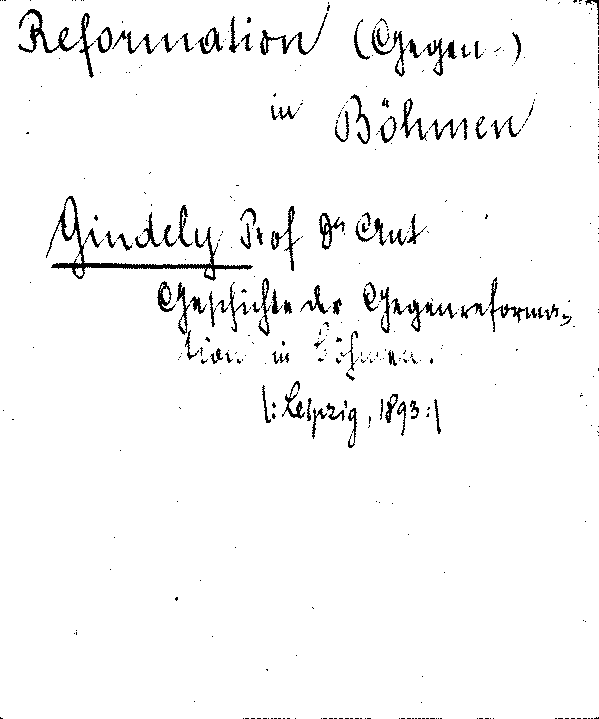 Reformation (Gegen-)
in Böhmen
Gindely Prof Dr Ant
Geschichte der Gegenreforma-
tion in Böhmen.
|: Leipzig, 1893 :|